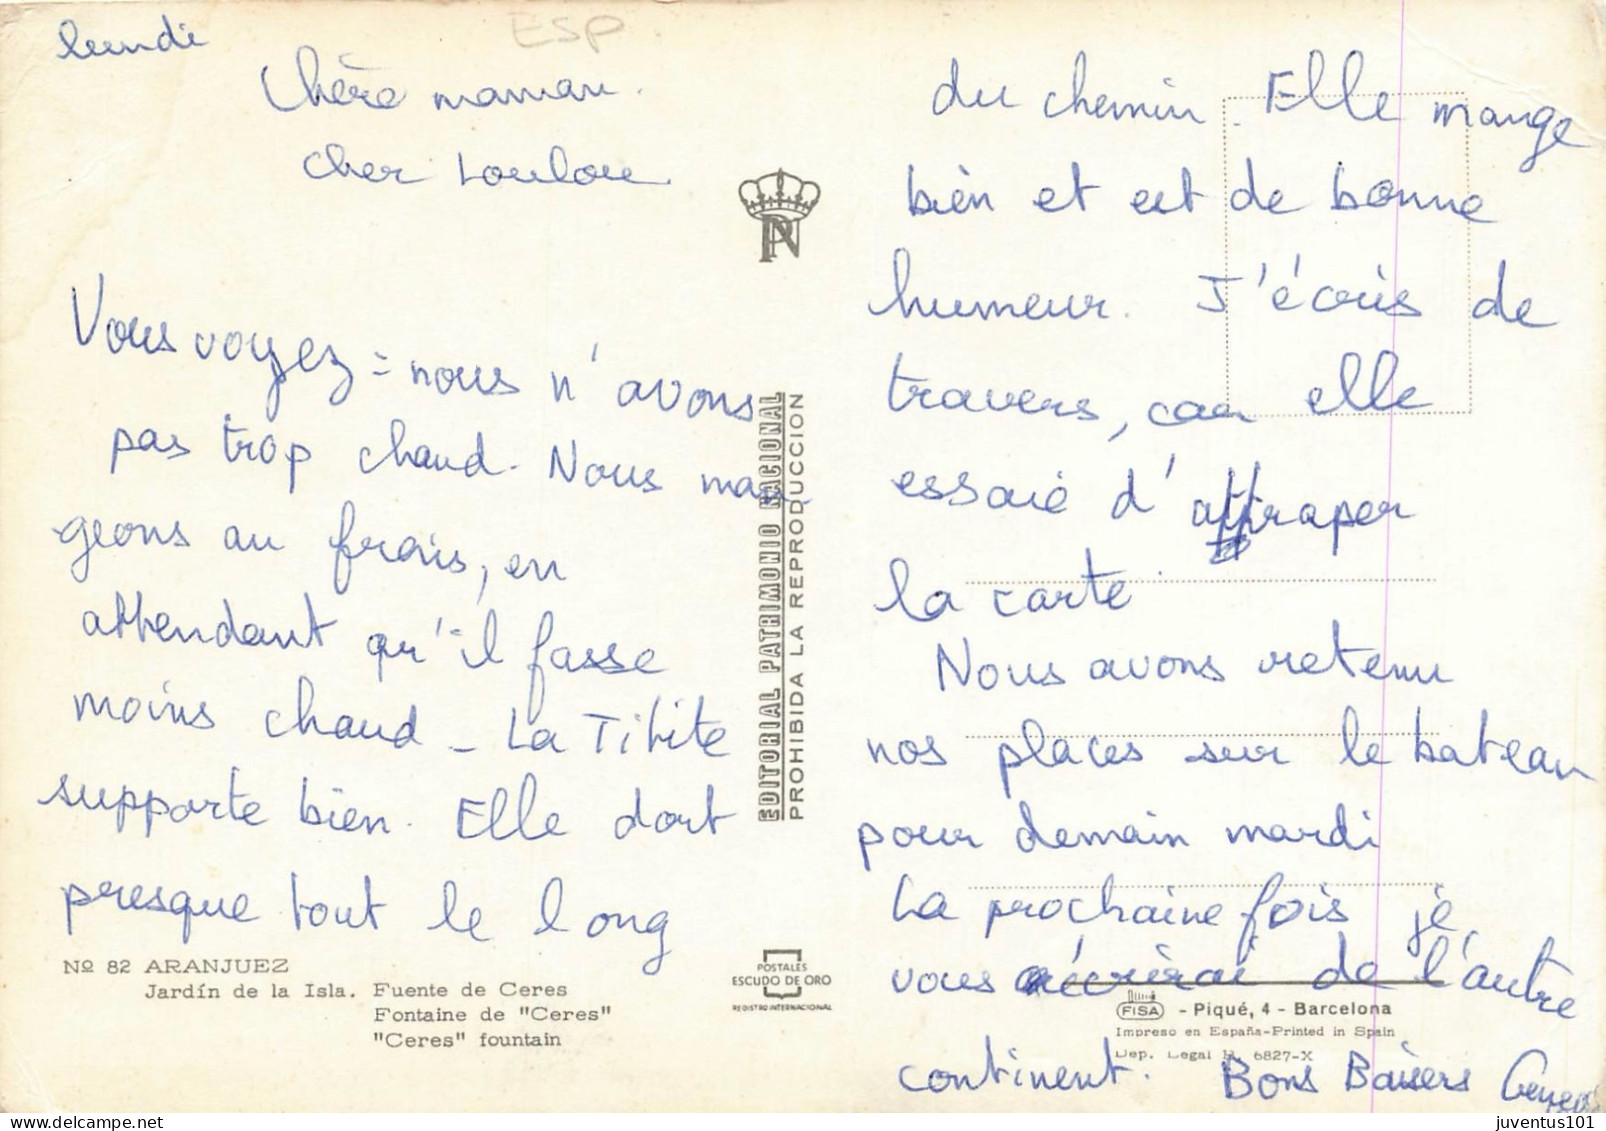 lundi
ESP
Chère maman.
cher Loulou.
Vous voyez = nous n'avons
pas trop chaud. Nous man-
geons au frais, en
attendant qu'il fasse
moins chaud - La Titite
supporte bien. Elle dort
presque tout le long
Nº 82 ARANJUEZ
Jardín de la Isla. Fuente de Ceres
Fontaine de "Ceres"
"Ceres" fountain
PN
EDITORIAL PATRIMONIO NACIONAL
PROHIBIDA LA REPRODUCCION
POSTALES
ESCUDO DE ORO
REGISTRO INTERNACIONAL
du chemin. Elle mange
bien et est de bonne
humeur. J'écris de
travers, car elle
essaie d'attraper
la carte
Nous avons retenu
nos places sur le bateau
pour demain mardi
La prochaine fois je
vous écrirai de l'autre
continent. Bons Baisers
FISA - Piqué, 4 - Barcelona
Impreso en España-Printed in Spain
Dep. Legal B. 6827-X
juventus101